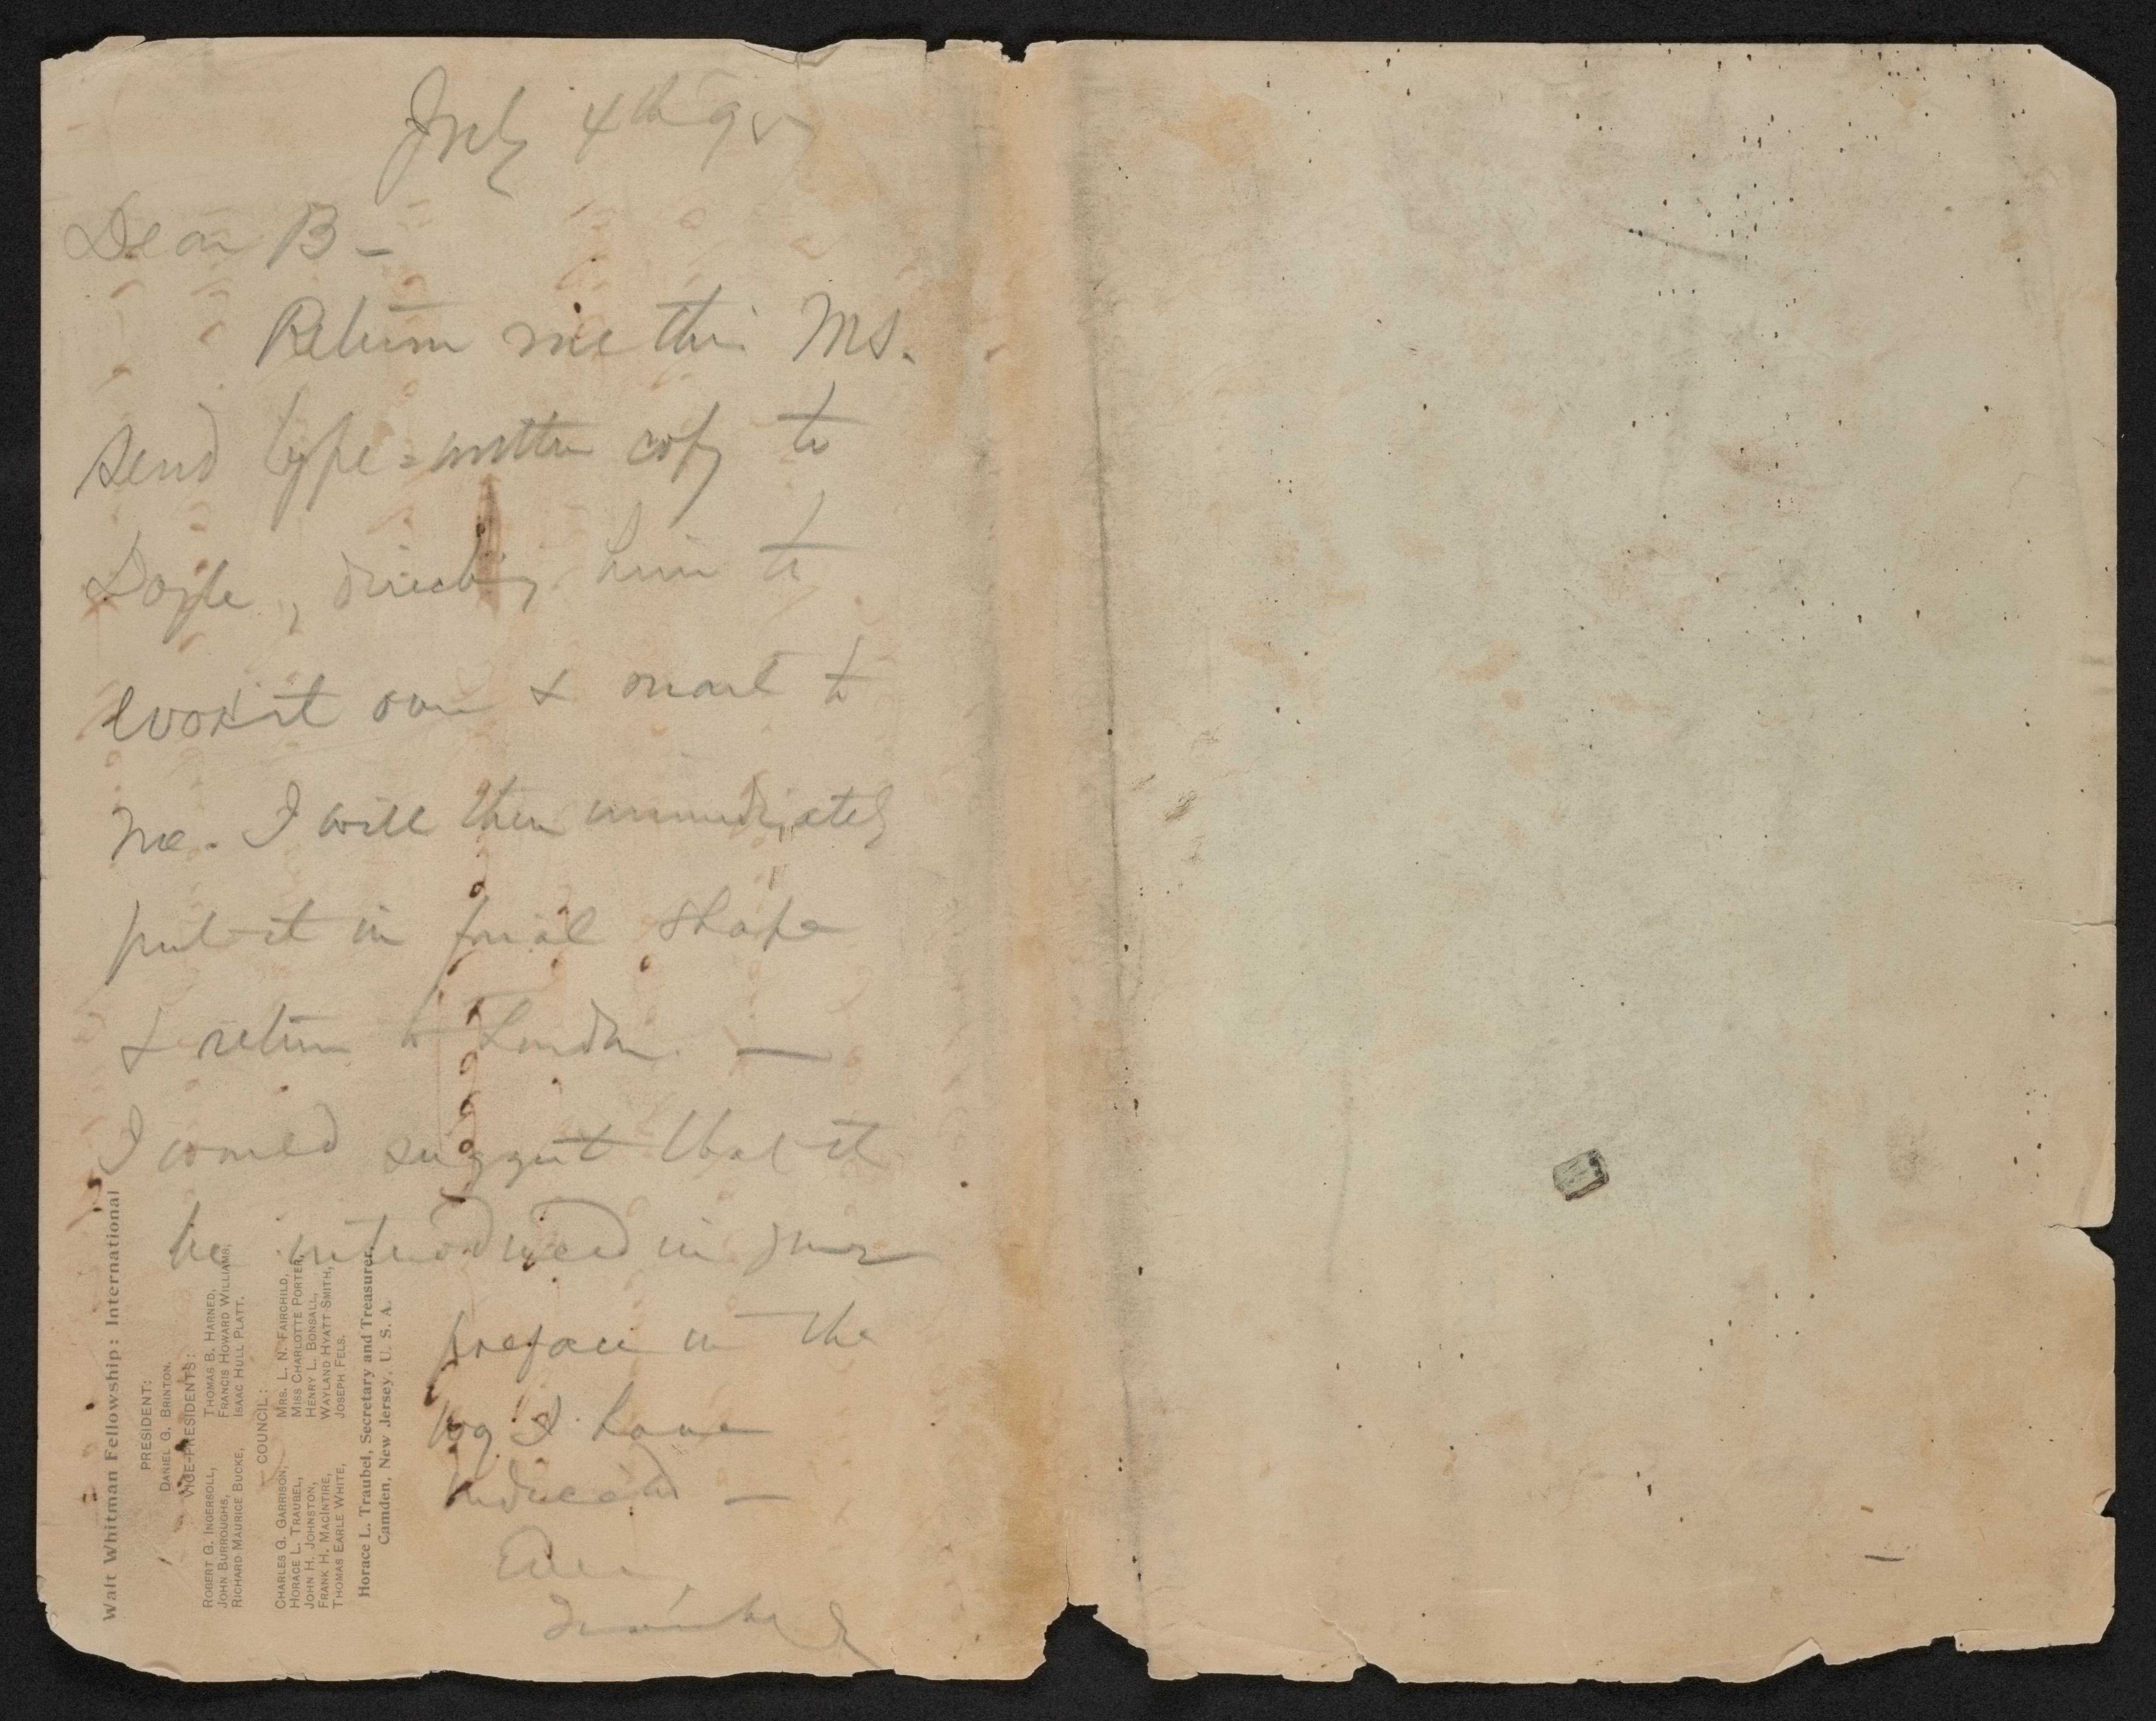 July 4th 95
Dear B –
Return me this Ms.
Send type=written copy to
Doyle, directing him to
look it over & mail to
me. I will then immediately
put it in final shape
& return to London. —
I would suggest that it
be introduced in your
preface in the
way I have
indicated —
Ever
Traubel
Walt Whitman Fellowship: International
PRESIDENT:
DANIEL G. BRINTON.
VICE-PRESIDENTS:
ROBERT G. INGERSOLL, THOMAS B. HARNED,
JOHN BURROUGHS, FRANCIS HOWARD WILLIAMS,
RICHARD MAURICE BUCKE, ISAAC HULL PLATT.
COUNCIL:
CHARLES G. GARRISON, MRS. L. N. FAIRCHILD,
HORACE L. TRAUBEL, MISS CHARLOTTE PORTER,
JOHN H. JOHNSTON, HENRY L. BONSALL,
FRANK H. MACINTIRE, WAYLAND HYATT SMITH,
THOMAS EARLE WHITE, JOSEPH FELS.
Horace L. Traubel, Secretary and Treasurer,
Camden, New Jersey, U. S. A.